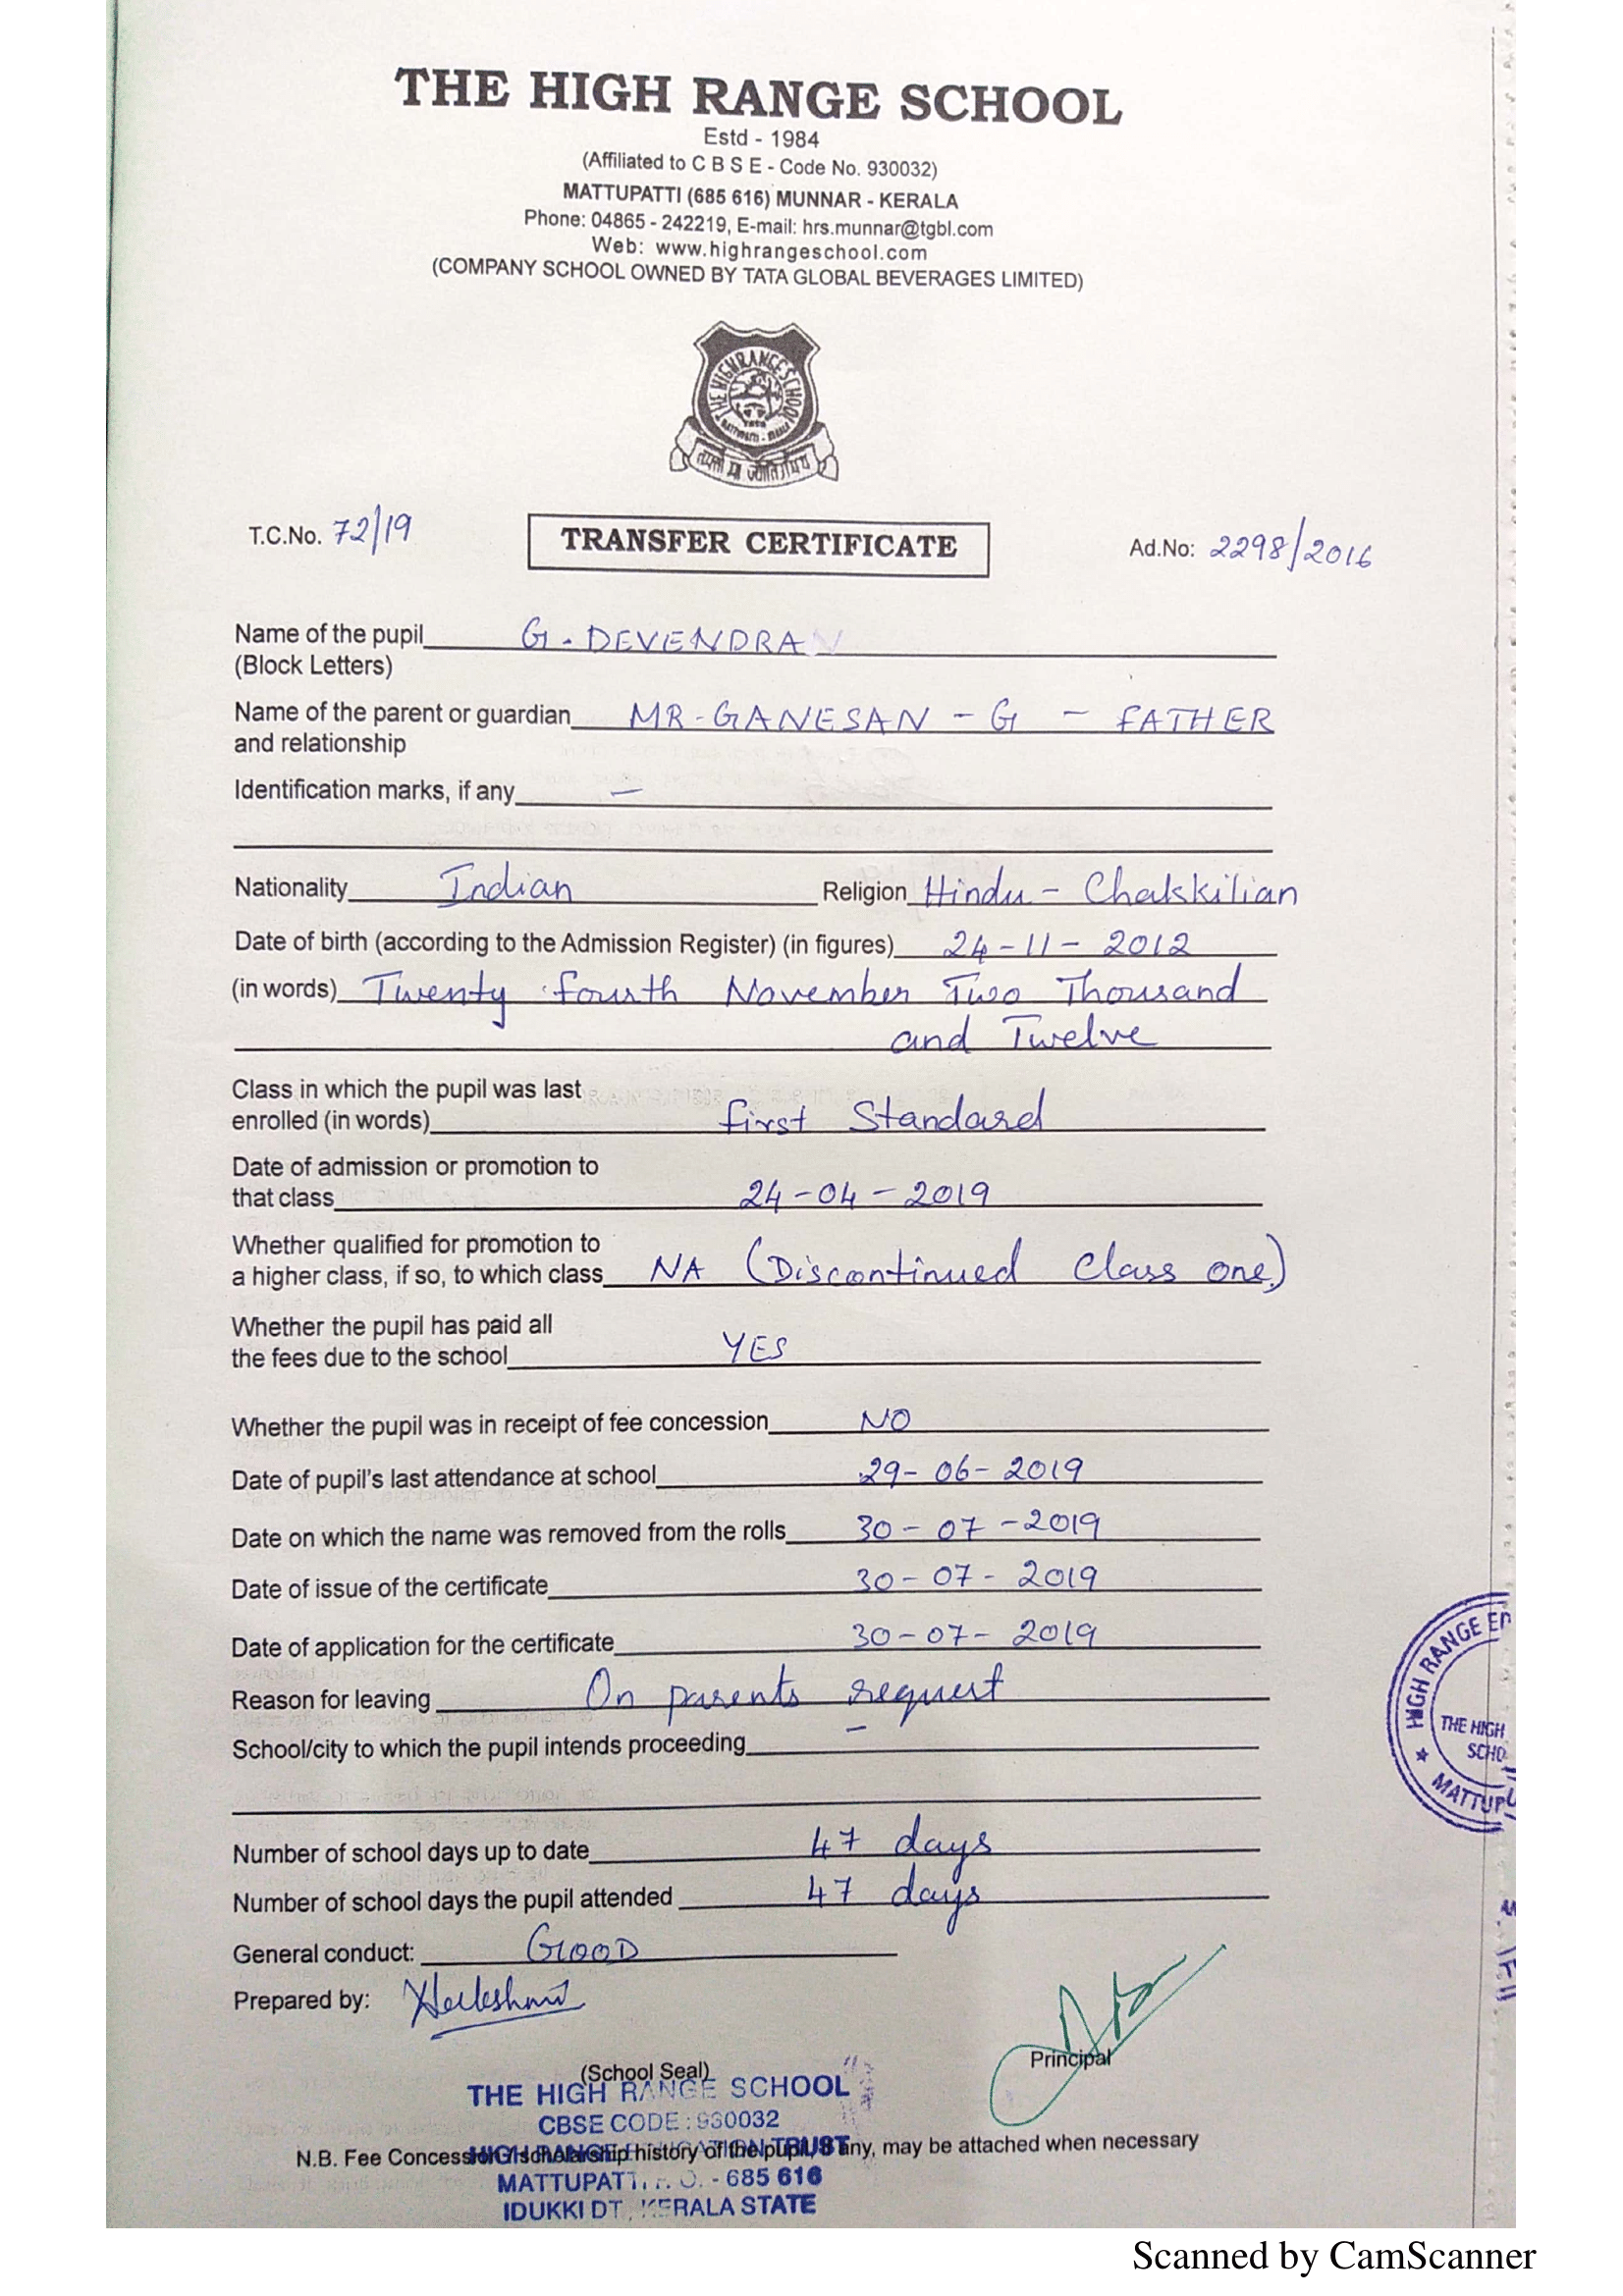 THE HIGH RANGE SCHOOL
Estd - 1984
(Affiliated to C B S E - Code No. 930032)
MATTUPATTI (685 616) MUNNAR - KERALA
Phone: 04865 - 242219, E-mail: hrs.munnar@tgbl.com
Web: www.highrangeschool.com
(COMPANY SCHOOL OWNED BY TATA GLOBAL BEVERAGES LIMITED)
THE HIGH RANGE SCHOOL
T.C.No. 72/19 TRANSFER CERTIFICATE Ad.No: 2298/2016
Name of the pupil G. DEVENDRAN
(Block Letters)
Name of the parent or guardian MR. GANESAN - G - FATHER
and relationship
Identification marks, if any —
Nationality Indian Religion Hindu - Chakkilian
Date of birth (according to the Admission Register) (in figures) 24-11-2012
(in words) Twenty fourth November Two Thousand
and Twelve
Class in which the pupil was last
enrolled (in words) first Standard
Date of admission or promotion to
that class 24-04-2019
Whether qualified for promotion to
a higher class, if so, to which class NA (Discontinued Class one)
Whether the pupil has paid all
the fees due to the school YES
Whether the pupil was in receipt of fee concession NO
Date of pupil's last attendance at school 29-06-2019
Date on which the name was removed from the rolls 30-07-2019
Date of issue of the certificate 30-07-2019
Date of application for the certificate 30-07-2019
Reason for leaving On parents request
School/city to which the pupil intends proceeding —
HIGH RANGE
THE HIGH
MATTUP
Number of school days up to date 47 days
Number of school days the pupil attended 47 days
General conduct: GOOD
Prepared by:
Principal
(School Seal)
THE HIGH RANGE SCHOOL
CBSE CODE : 930032
N.B. Fee Concession / scholarship history of the pupil, if any, may be attached when necessary
HIGH RANGE EDUCATION TRUST
MATTUPATTI P.O. - 685 616
IDUKKI DT, KERALA STATE
Scanned by CamScanner